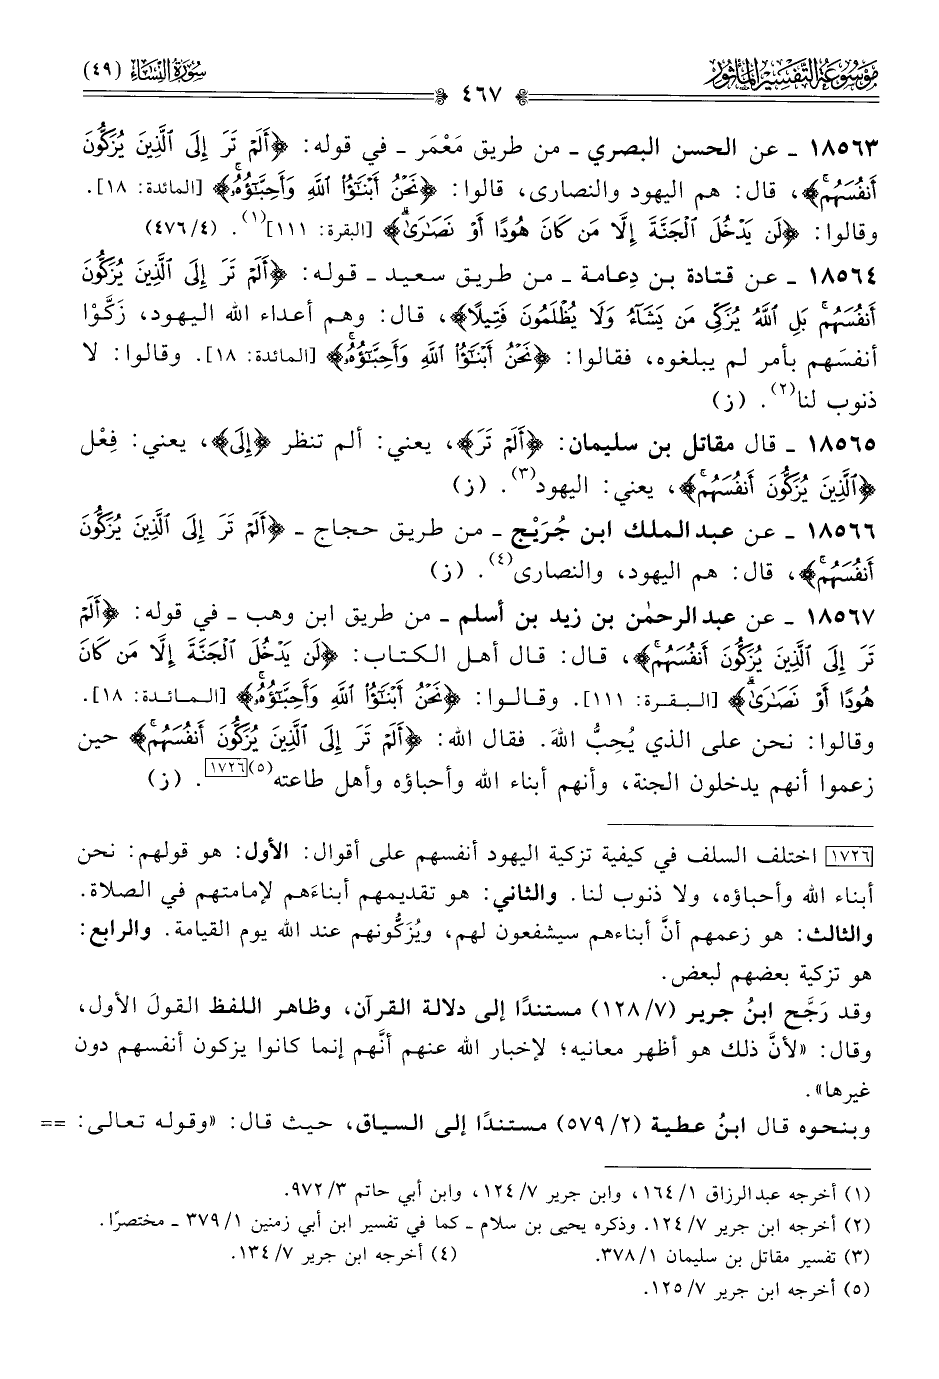 موسوعة التفسير المأثور
سورة النساء (٤٩)
٤٦٧
١٨٥٦٣ ـ عن الحسن البصري ـ من طريق مَعْمَر ـ في قوله: ﴿أَلَمْ تَرَ إِلَى ٱلَّذِينَ يُزَكُّونَ
أَنفُسَهُمْۚ﴾، قال: هم اليهود والنصارى، قالوا: ﴿نَحْنُ أَبْنَٰٓؤُا۟ ٱللَّهِ وَأَحِبَّٰٓؤُهُۥۚ﴾ [المائدة: ١٨].
وقالوا: ﴿لَن يَدْخُلَ ٱلْجَنَّةَ إِلَّا مَن كَانَ هُودًا أَوْ نَصَٰرَىٰۗ﴾ [البقرة: ١١١](١). (٤/٤٧٦)
١٨٥٦٤ ـ عن قتادة بن دِعامة ـ من طريق سعيد ـ قوله: ﴿أَلَمْ تَرَ إِلَى ٱلَّذِينَ يُزَكُّونَ
أَنفُسَهُمْۚ بَلِ ٱللَّهُ يُزَكِّى مَن يَشَآءُ وَلَا يُظْلَمُونَ فَتِيلًا﴾، قال: وهم أعداء الله اليهود، زَكَّوْا
أنفسَهم بأمر لم يبلغوه، فقالوا: ﴿نَحْنُ أَبْنَٰٓؤُا۟ ٱللَّهِ وَأَحِبَّٰٓؤُهُۥۚ﴾ [المائدة: ١٨]. وقالوا: لا
ذنوب لنا(٢). (ز)
١٨٥٦٥ ـ قال مقاتل بن سليمان: ﴿أَلَمْ تَرَ﴾، يعني: ألم تنظر ﴿إِلَى﴾، يعني: فِعْل
﴿ٱلَّذِينَ يُزَكُّونَ أَنفُسَهُمْۚ﴾، يعني: اليهود(٣). (ز)
١٨٥٦٦ ـ عن عبدالملك ابن جُرَيْج ـ من طريق حجاج ـ ﴿أَلَمْ تَرَ إِلَى ٱلَّذِينَ يُزَكُّونَ
أَنفُسَهُمْۚ﴾، قال: هم اليهود، والنصارى(٤). (ز)
١٨٥٦٧ ـ عن عبدالرحمٰن بن زيد بن أسلم ـ من طريق ابن وهب ـ في قوله: ﴿أَلَمْ
تَرَ إِلَى ٱلَّذِينَ يُزَكُّونَ أَنفُسَهُمْۚ﴾، قال: قال أهل الكتاب: ﴿لَن يَدْخُلَ ٱلْجَنَّةَ إِلَّا مَن كَانَ
هُودًا أَوْ نَصَٰرَىٰۗ﴾ [البقرة: ١١١]. وقالوا: ﴿نَحْنُ أَبْنَٰٓؤُا۟ ٱللَّهِ وَأَحِبَّٰٓؤُهُۥۚ﴾ [المائدة: ١٨].
وقالوا: نحن على الذي يُحِبُّ اللهَ. فقال الله: ﴿أَلَمْ تَرَ إِلَى ٱلَّذِينَ يُزَكُّونَ أَنفُسَهُمْۚ﴾ حين
زعموا أنهم يدخلون الجنة، وأنهم أبناء الله وأحباؤه وأهل طاعته(٥)[١٧٢٦]. (ز)
[١٧٢٦] اختلف السلف في كيفية تزكية اليهود أنفسهم على أقوال: الأول: هو قولهم: نحن
أبناء الله وأحباؤه، ولا ذنوب لنا. والثاني: هو تقديمهم أبناءَهم لإمامتهم في الصلاة.
والثالث: هو زعمهم أنَّ أبناءهم سيشفعون لهم، ويُزَكُّونهم عند الله يوم القيامة. والرابع:
هو تزكية بعضهم لبعض.
وقد رَجَّح ابنُ جرير (٧/١٢٨) مستندًا إلى دلالة القرآن، وظاهر اللفظ القولَ الأول،
وقال: «لأنَّ ذلك هو أظهر معانيه؛ لإخبار الله عنهم أنَّهم إنما كانوا يزكون أنفسهم دون
غيرها».
وبنحوه قال ابنُ عطية (٢/٥٧٩) مستندًا إلى السياق، حيث قال: «وقوله تعالى: ==
(١) أخرجه عبدالرزاق ١/١٦٤، وابن جرير ٧/١٢٤، وابن أبي حاتم ٣/٩٧٢.
(٢) أخرجه ابن جرير ٧/١٢٤. وذكره يحيى بن سلام ـ كما في تفسير ابن أبي زمنين ١/٣٧٩ ـ مختصرًا.
(٣) تفسير مقاتل بن سليمان ١/٣٧٨. (٤) أخرجه ابن جرير ٧/١٣٤.
(٥) أخرجه ابن جرير ٧/١٢٥.